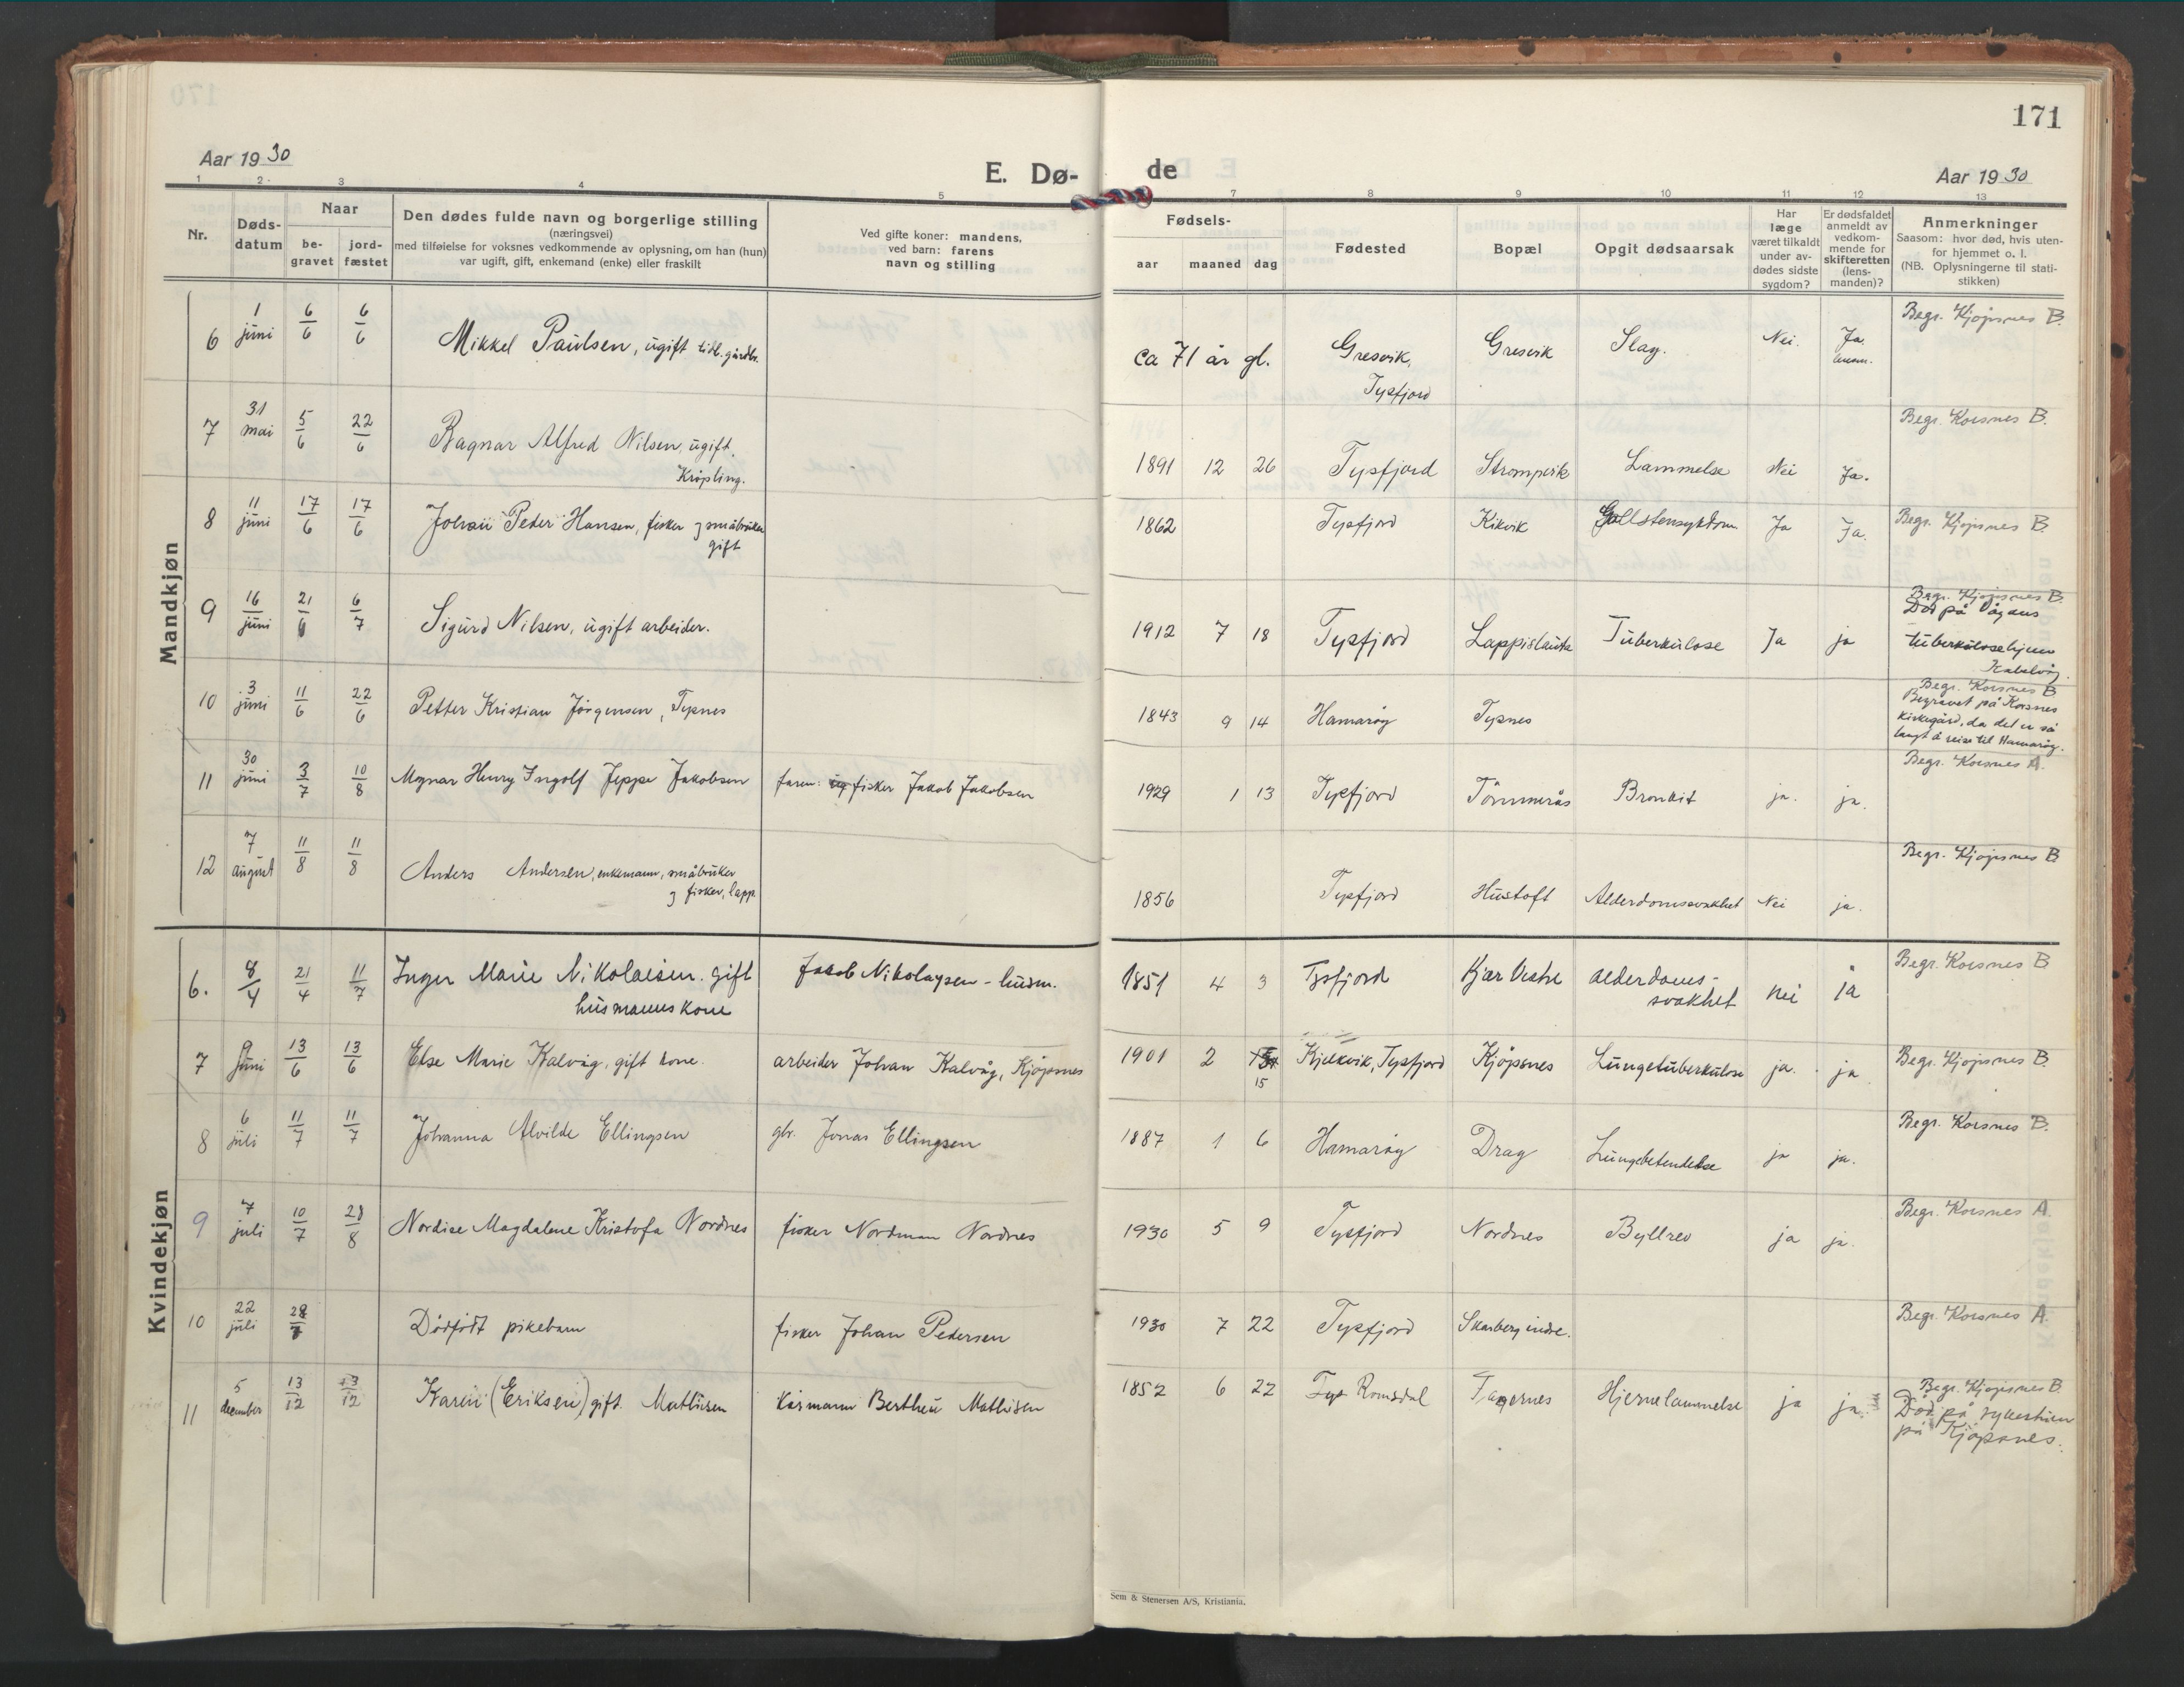 171
Aar 1930
E. Dø-
de
Aar 1930
1 2 3 4 5 7 8 9 10 11 12 13
Nr.
Døds-
datum
Naar
be-
gravet
jord-
fæstet
Den dødes fulde navn og borgerlige stilling
(næringsvei)
med tilføielse for voksnes vedkommende av oplysning, om han (hun)
var ugift, gift, enkemand (enke) eller fraskilt
Ved gifte koner: mandens,
ved barn: farens
navn og stilling
Fødsels-
aar maaned dag
Fødested
Bopæl
Opgit dødsaarsak
Har
læge
været tilkaldt
under av-
dødes sidste
sygdom?
Er dødsfaldet
anmeldt av
vedkom-
mende for
skifteretten
(lens-
manden)?
Anmerkninger
Saasom: hvor død, hvis uten-
for hjemmet o. l.
(NB. Oplysningerne til stati-
stikken)
Mandkjøn
6 1 juni 6/6 6/6 Mikkel Paulsen, ugift tidl. gårdbr. ca 71 år gl. Gresvik, Gresvik Slag. Nei. Ja. Begr. Kjøpsnes B.
Tysfjord
7 31 mai 5/6 22/6 Ragnar Alfred Nilsen, ugift. 1891 12 26 Tysfjord Lammelse Nei Ja. Begr. Korsnes B.
Krøpling.
8 11 juni 17/6 17/6 Johan Peder Hansen, fisker og småbruker 1862 Tysfjord Kikvik Gallstensykdom Ja Ja. Begr. Kjøpsnes B
gift
9 16 juni 21/6 6/7 Sigurd Nilsen, ugift arbeider. 1912 7 18 Tysfjord Tuberkulose Ja ja Begr. Kjøpsnes B.
Død på Vågans
tuberkulosehjem
Kabelvåg.
10 3 juni 11/6 22/6 Petter Kristian Jörgensen, Tysnes 1843 9 14 Hamarøy Tysnes Begr. Korsnes B
Begravet på Korsnes
kirkegård, da det er så
langt å reise til Hamarøy.
11 30 juni 3/7 10/8 Magnar Henry Ingolf Jeppe Jakobsen faren: fisker Jakob Jakobsen 1929 1 13 Tysfjord Tömmerås Bronkit ja. ja. Begr. Korsnes A.
12 7 august 11/8 11/8 Anders Andersen, enkemann, småbruker 1856 Tysfjord Hustoft Alderdomssvakhet Nei ja. Begr. Kjøpsnes B
og fisker, lapp
Kvindekjøn
6. 8/4 21/4 11/7 Inger Marie Nikolaisen. gift Jakob Nikolaysen - husm. 1851 4 3 Tysfjord Kjær Vestre alderdoms- nei ja Begr. Korsnes B
husmannskone svakhet
7 9 juni 13/6 13/6 Else Marie Kalvåg, gift kone. arbeider Johan Kalvåg, Kjøpsnes 1901 2 15 Kjelkvik, Tysfjord Kjøpsnes Lungetuberkulose ja. ja Begr. Kjøpsnes B.
8 6 juli 11/7 11/7 Johanna Alvilde Ellingsen gbr. Jonas Ellingsen 1887 1 6 Hamarøy Drag Lungebetendelse ja ja. Begr. Korsnes B.
9 7 juli 10/7 28/8 Nordise Magdalene Kristofa Nordnes fisker Nordman Nordnes 1930 5 9 Tysfjord Nordnes ja ja. Begr. Korsnes A.
10 22 juli Dödfödt pikebarn fisker Johan Pedersen 1930 7 22 Tysfjord Skarberg indre. Begr. Korsnes A.
11 5 december 13/12 13/12 Karen (Eriksen) gift Mathisen Mathisen 1852 6 22 Romsdal Hjernelammelse ja ja Begr. Kjøpsnes B.
Död på sykestuen
på Kjøpsnes.
Sem & Stenersen A/S, Kristiania.